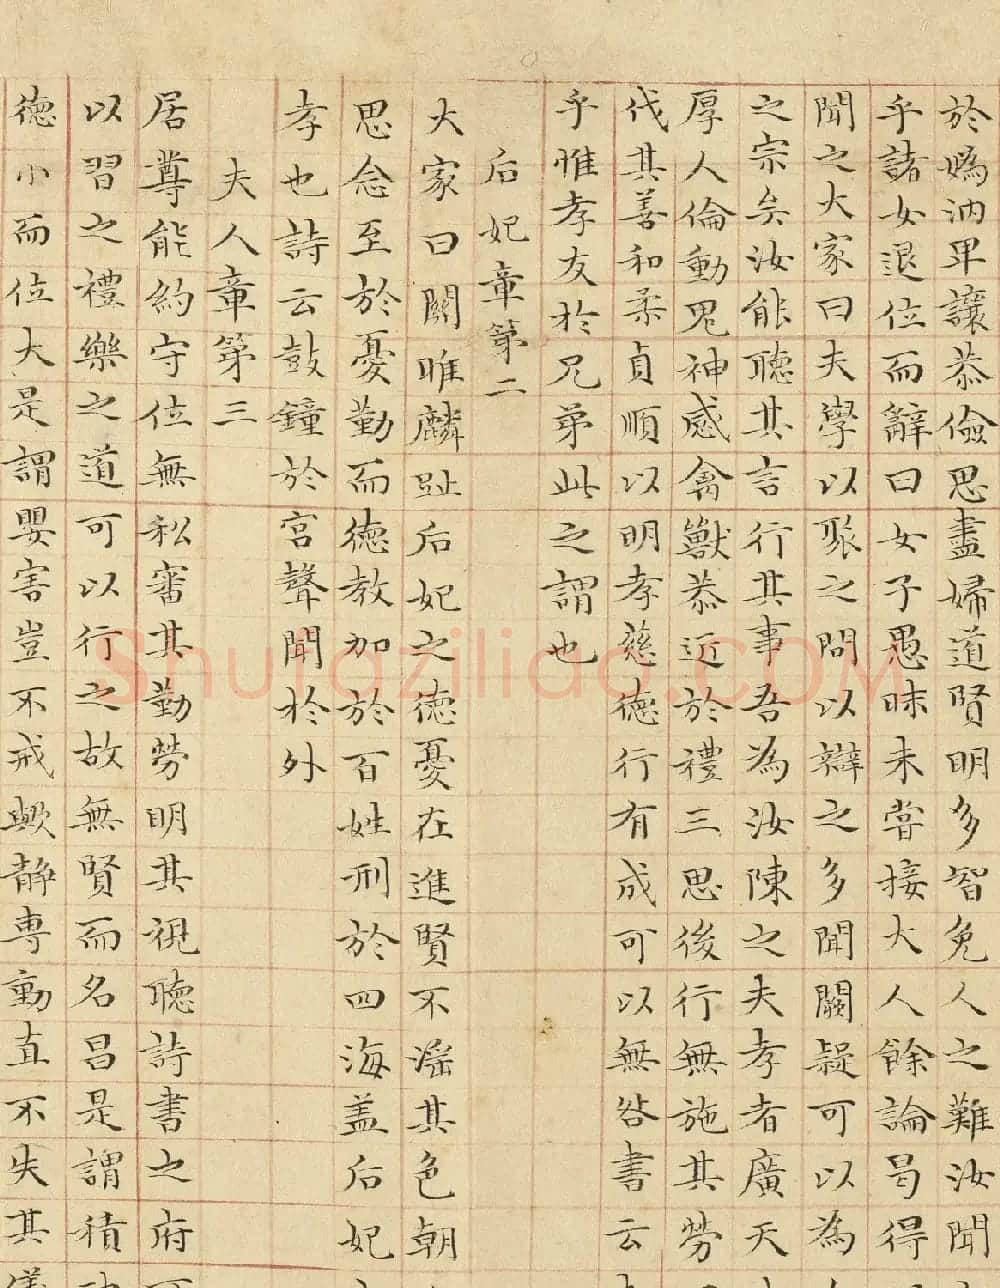 於嬀汭卑讓恭儉思盡婦道賢明多智免人之難汝聞
乎諸女退位而辭曰女子愚昧未嘗接大人餘論曷得
聞之大家曰夫學以聚之問以辯之多聞闕疑可以為
之宗矣汝能聽其言行其事吾為汝陳之夫孝者廣天
厚人倫動鬼神感禽獸恭近於禮三思後行無施其勞
代其善和柔貞順以明孝慈德行有成可以無咎書云
乎惟孝友於兄弟此之謂也
后妃章第二
大家曰關雎麟趾后妃之德憂在進賢不淫其色朝
思念至於憂勤而德教加於百姓刑於四海盖后妃
孝也詩云鼓鐘於宮聲聞於外
夫人章第三
居尊能約守位無私審其勤勞明其視聽詩書之府
以習之禮樂之道可以行之故無賢而名昌是謂積
德小而位大是謂嬰害豈不戒歟静專動直不失其
Shufaziliao.COM